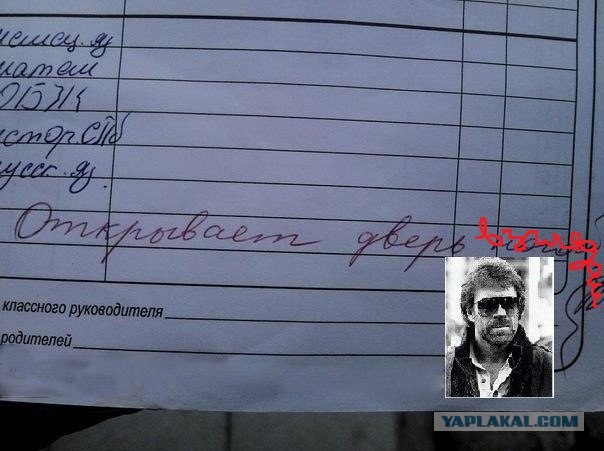 емец. яз
матем
ОБЖ
истор СПб
усск. яз.
Открывает дверь взглядом
классного руководителя
родителей
YAPLAKAL.COM